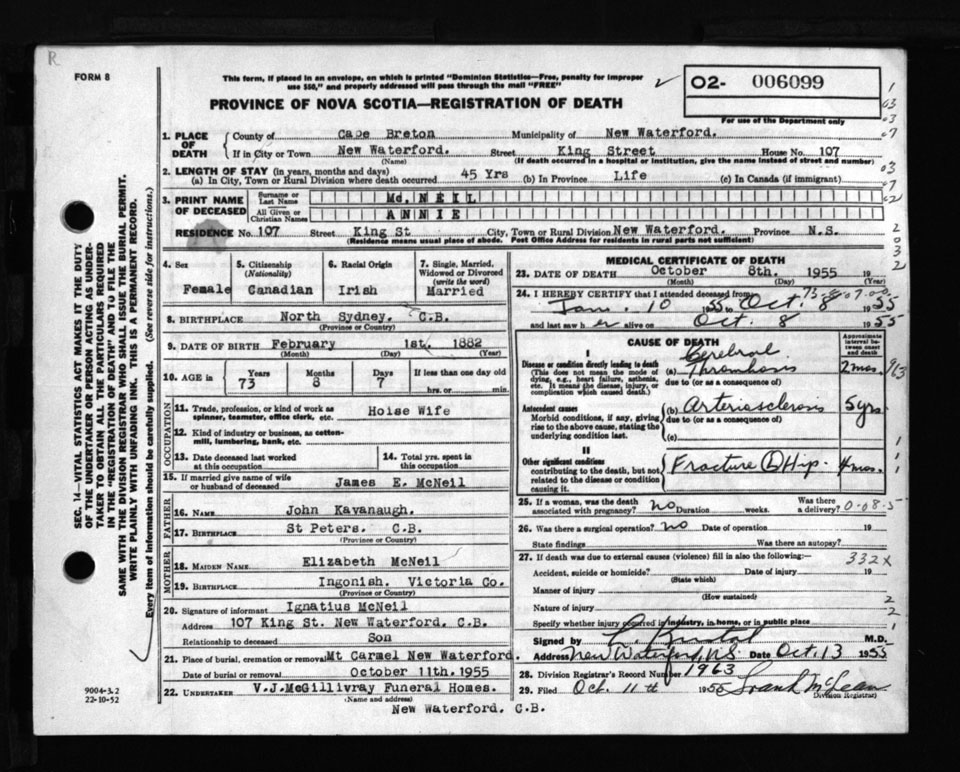 R
FORM 8
This form, if placed in an envelope, on which is printed "Dominion Statistics—Free, penalty for improper
use $50," and properly addressed will pass through the mail "FREE"
02- 006099
For use of the Department only
PROVINCE OF NOVA SCOTIA—REGISTRATION OF DEATH
SEC. 14—VITAL STATISTICS ACT MAKES IT THE DUTY
OF THE UNDERTAKER OR PERSON ACTING AS UNDER-
TAKER TO OBTAIN ALL THE PARTICULARS REQUIRED
IN THE "REGISTRATION OF DEATH" AND TO FILE THE
SAME WITH THE DIVISION REGISTRAR WHO SHALL ISSUE THE BURIAL PERMIT.
WRITE PLAINLY WITH UNFADING INK. THIS IS A PERMANENT RECORD.
Every item of information should be carefully supplied. (See reverse side for instructions.)
1. PLACE OF DEATH County of Cape Breton Municipality of New Waterford.
If in City or Town New Waterford. Street King Street House No. 107
(Name) (If death occurred in a hospital or institution, give the name instead of street and number)
2. LENGTH OF STAY (in years, months and days)
(a) In City, Town or Rural Division where death occurred 45 Yrs (b) In Province Life (c) In Canada (if immigrant)
3. PRINT NAME OF DECEASED Surname or Last Name Mc. NEIL
All Given or Christian Names ANNIE
RESIDENCE No. 107 Street King St City, Town or Rural Division New Waterford. Province N.S.
(Residence means usual place of abode. Post Office Address for residents in rural parts not sufficient)
4. Sex Female
5. Citizenship (Nationality) Canadian
6. Racial Origin Irish
7. Single, Married, Widowed or Divorced (write the word) Married
8. BIRTHPLACE North Sydney. C.B.
(Province or Country)
9. DATE OF BIRTH February 1st. 1882
(Month) (Day) (Year)
10. AGE in Years 73 Months 8 Days 7 If less than one day old hrs. or min.
OCCUPATION
11. Trade, profession, or kind of work as spinner, teamster, office clerk, etc. Hoise Wife
12. Kind of industry or business, as cotton-mill, lumbering, bank, etc.
13. Date deceased last worked at this occupation
14. Total yrs. spent in this occupation
15. If married give name of wife or husband of deceased James E. McNeil
FATHER
16. NAME John Kavanaugh.
17. BIRTHPLACE St Peters. C.B.
(Province or Country)
MOTHER
18. MAIDEN NAME Elizabeth McNeil
19. BIRTHPLACE Ingonish. Victoria Co.
(Province or Country)
20. Signature of informant Ignatius McNeil
Address 107 King St. New Waterford. C.B.
Relationship to deceased Son
21. Place of burial, cremation or removal Mt Carmel New Waterford.
Date of burial or removal October 11th. 1955
22. UNDERTAKER V.J.McGillivray Funeral Homes.
(Name and address)
New Waterford. C.B.
9004-3.2
22-10-52
MEDICAL CERTIFICATE OF DEATH
23. DATE OF DEATH October 8th. 1955 19
(Month) (Day) (Year)
24. I HEREBY CERTIFY that I attended deceased from
Jan. 10 1955 Oct. 8 1955
and last saw h er alive on Oct. 8 1955
CAUSE OF DEATH
Approximate interval between onset and death
I
Disease or condition directly leading to death
(This does not mean the mode of dying, e.g., heart failure, asthenia, etc. It means the disease, injury, or complication which caused death.)
(a) Cerebral Thrombosis 2 mos.
due to (or as a consequence of)
Antecedent causes
Morbid conditions, if any, giving rise to the above cause, stating the underlying condition last.
(b) Arteriosclerosis 5 yrs
due to (or as a consequence of)
(c)
II
Other significant conditions
contributing to the death, but not related to the disease or condition causing it.
Fracture Hip. 4 mos.
25. If a woman, was the death associated with pregnancy? no Duration weeks. Was there a delivery?
26. Was there a surgical operation? no Date of operation 19
State findings Was there an autopsy?
27. If death was due to external causes (violence) fill in also the following:—
332X
Accident, suicide or homicide? Date of injury 19
(State which)
Manner of injury
(How sustained)
Nature of injury
Specify whether injury occurred in industry, in home, or in public place
Signed by M.D.
Address New Waterford, N.S. Date Oct. 13 1955
28. Division Registrar's Record Number 1963
29. Filed Oct. 11th 1955 Frank McLean
(Division Registrar)